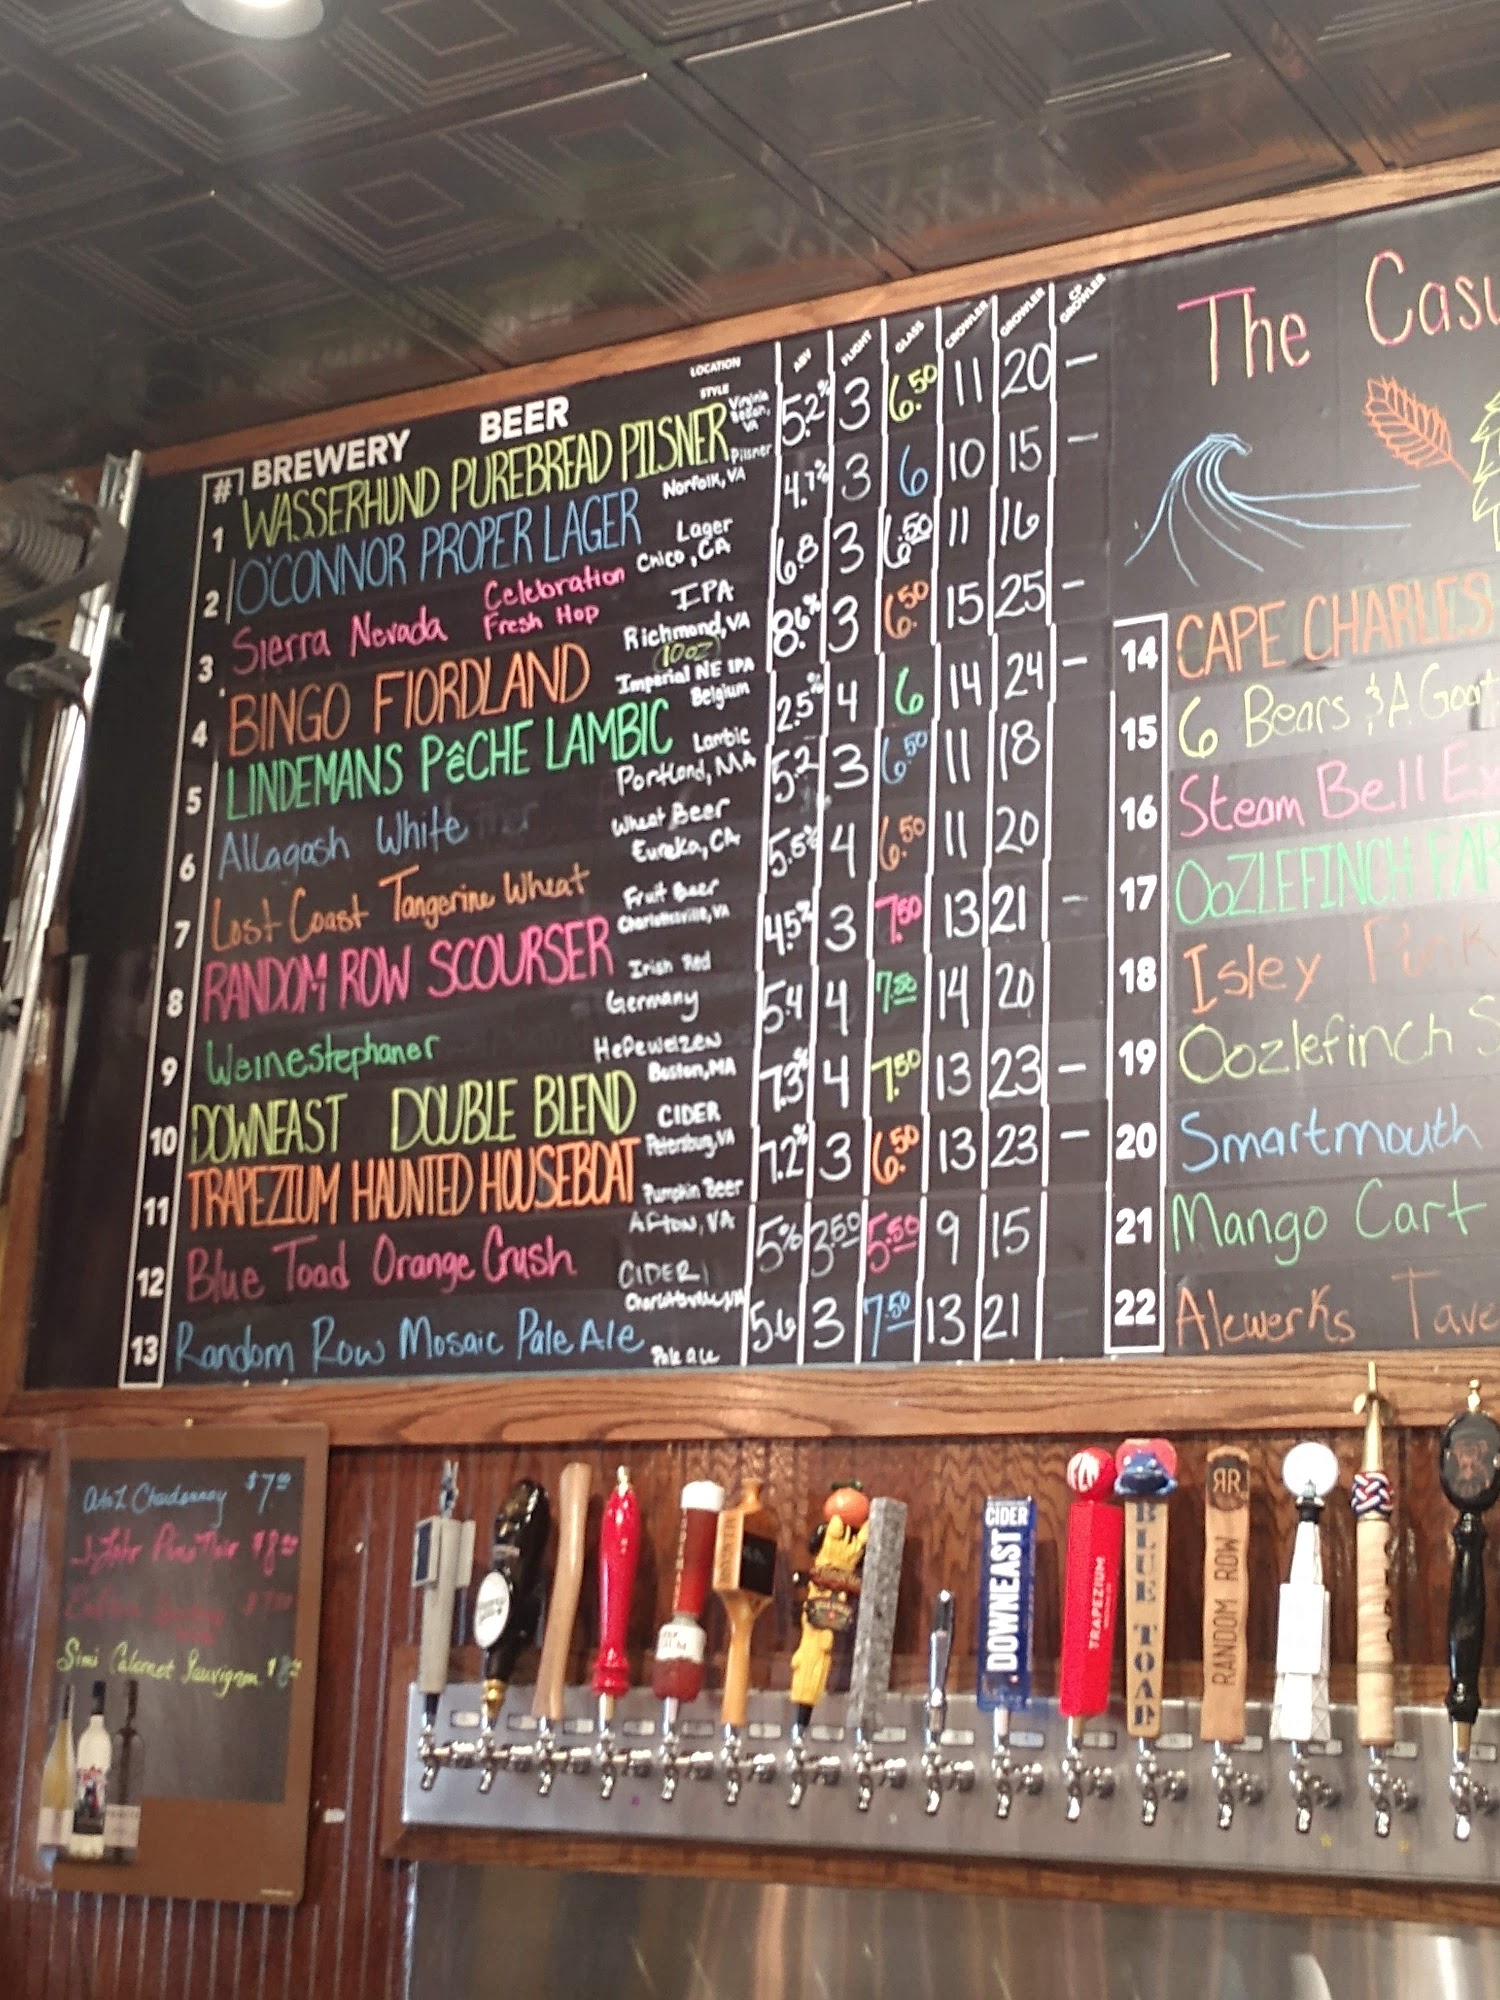 LOCATION
# BREWERY BEER STYLE ABV FLIGHT GLASS CROWLER GROWLER CP GROWLER
1 WASSERHUND PUREBREAD PILSNER Virginia Beach, VA Pilsner 5.2% 3 6.50 11 20 —
2 O'CONNOR PROPER LAGER Norfolk, VA Lager 4.7% 3 6 10 15 —
3 Sierra Nevada Celebration Fresh Hop Chico, CA IPA 6.8 3 6.50 11 16
4 BINGO FIORDLAND Richmond, VA 10oz Imperial NE IPA 8.6% 3 6.50 15 25 —
5 LINDEMANS PÊCHE LAMBIC Belgium Lambic 2.5% 4 6 14 24 —
6 Allagash White Portland, MA Wheat Beer 5.2 3 6.50 11 18
7 Lost Coast Tangerine Wheat Eureka, CA Fruit Beer 5.5% 4 6.50 11 20
8 RANDOM ROW SCOURSER Charlottesville, VA Irish Red 4.5% 3 7.50 13 21 —
9 Weinestephaner Germany Hefeweizen 5.4 4 7.50 14 20
10 DOWNEAST DOUBLE BLEND Boston, MA CIDER 7.3% 4 7.50 13 23 —
11 TRAPEZIUM HAUNTED HOUSEBOAT Petersburg, VA Pumpkin Beer 7.2% 3 6.50 13 23 —
12 Blue Toad Orange Crush Afton, VA CIDER 5% 3.50 5.50 9 15
13 Random Row Mosaic Pale Ale Charlottesville, VA Pale ale 5.6 3 7.50 13 21
The Casu
14 CAPE CHARLES
15 6 Bears & A Goat
16 Steam Bell Ex
17 OOZLEFINCH FAR
18 Isley Pink
19 Oozlefinch S
20 Smartmouth
21 Mango Cart
22 Alewerks Tave
A to Z Chardonnay $7.00
J. Lohr Pinot Noir $8.00
Simi Cabernet Sauvignon
CIDER
DOWNEAST
TRAPEZIUM
BLUE TOAD
RR
RANDOM ROW